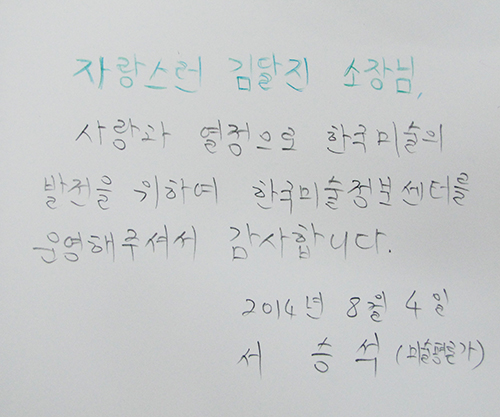 자랑스런 김달진 소장님,
사랑과 열정으로 한국미술의
발전을 위하여 한국미술정보센터를
운영해주셔서 감사합니다.
2014년 8월 4일
서 승 석 (미술평론가)